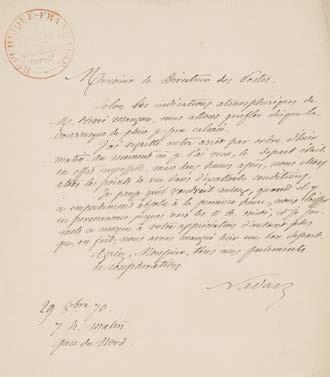 RÉPUBLIQUE FRANÇAISE
Monsieur le Directeur des Postes
Selon les indications atmosphériques de
M. Hervé Mangon, nous allons gonfler dès que la
bourrasque de pluie sera calmée.
J'ai regretté votre arrêt par ordre d'hier
matin. Au moment où je l'ai reçu, le départ était
en effet impossible, mais deux heures après, nous étions
dans d'excellentes conditions.
Je pense qu'il vaudrait mieux, quand il y
a empêchement absolu à la première heure, nous laisser
en permanence jusques vers les 11 h. et je
à votre appréciation d'autant plus
que, en fait, nous avons manqué hier un bon départ.
Agréez, Monsieur, tous mes
de considération
Nadar
29 8bre 70.
7 h. matin
Gare du Nord.